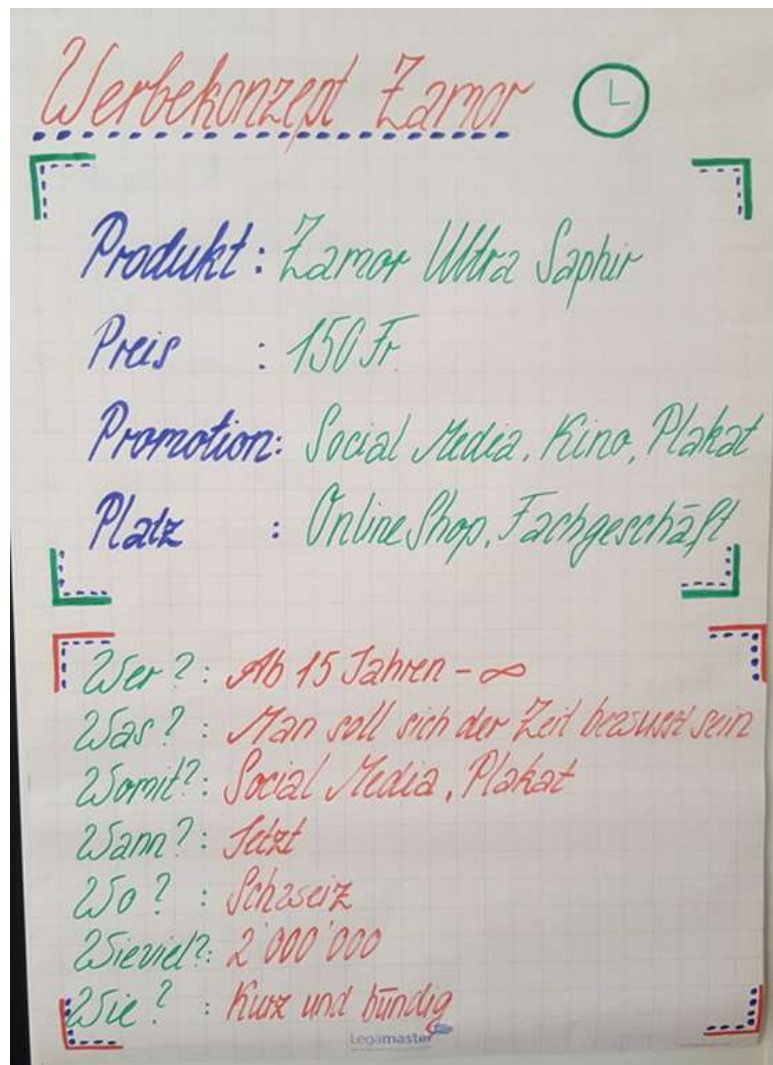 Werbekonzept Zamor
Produkt: Zamor Ultra Saphir
Preis : 150 Fr.
Promotion: Social Media, Kino, Plakat
Platz : Online Shop, Fachgeschäft
Wer?: Ab 15 Jahren - ∞
Was?: Man soll sich der Zeit bewusst sein
Womit?: Social Media, Plakat
Wann?: Jetzt
Wo? : Schweiz
Wieviel?: 2'000'000
Wie? : Kurz und bündig
Legamaster